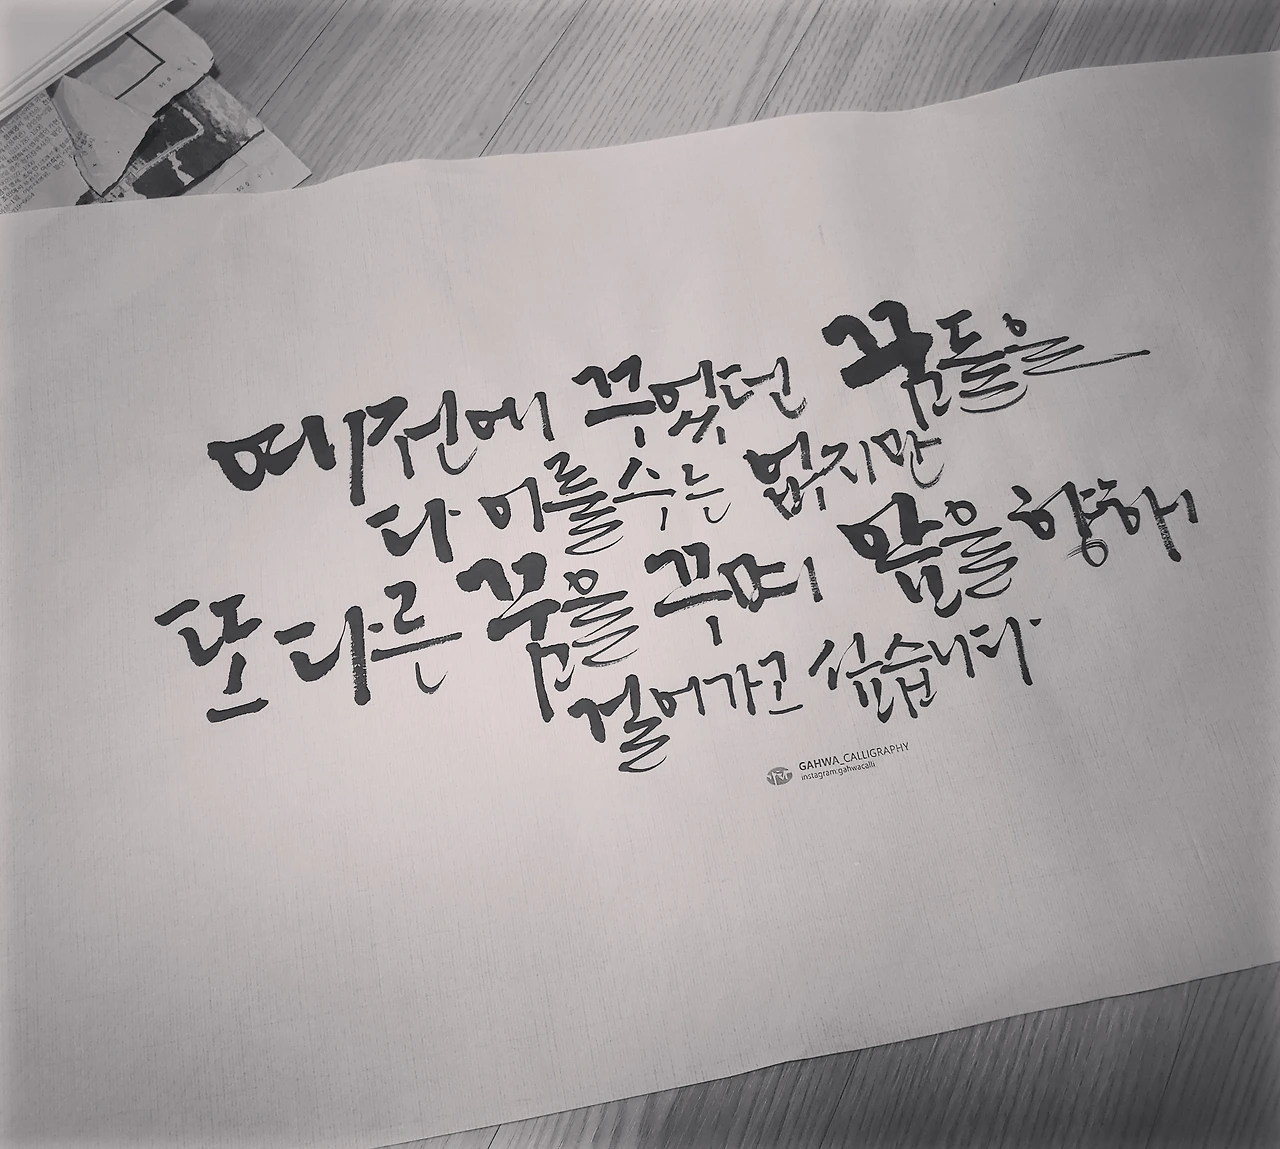 예전에 꾸었던 꿈들을
다 이룰 수는 없지만
또 다른 꿈을 꾸며 앞을 향해
걸어가고 싶습니다
GAHWA_CALLIGRAPHY
instagram:gahwacalli